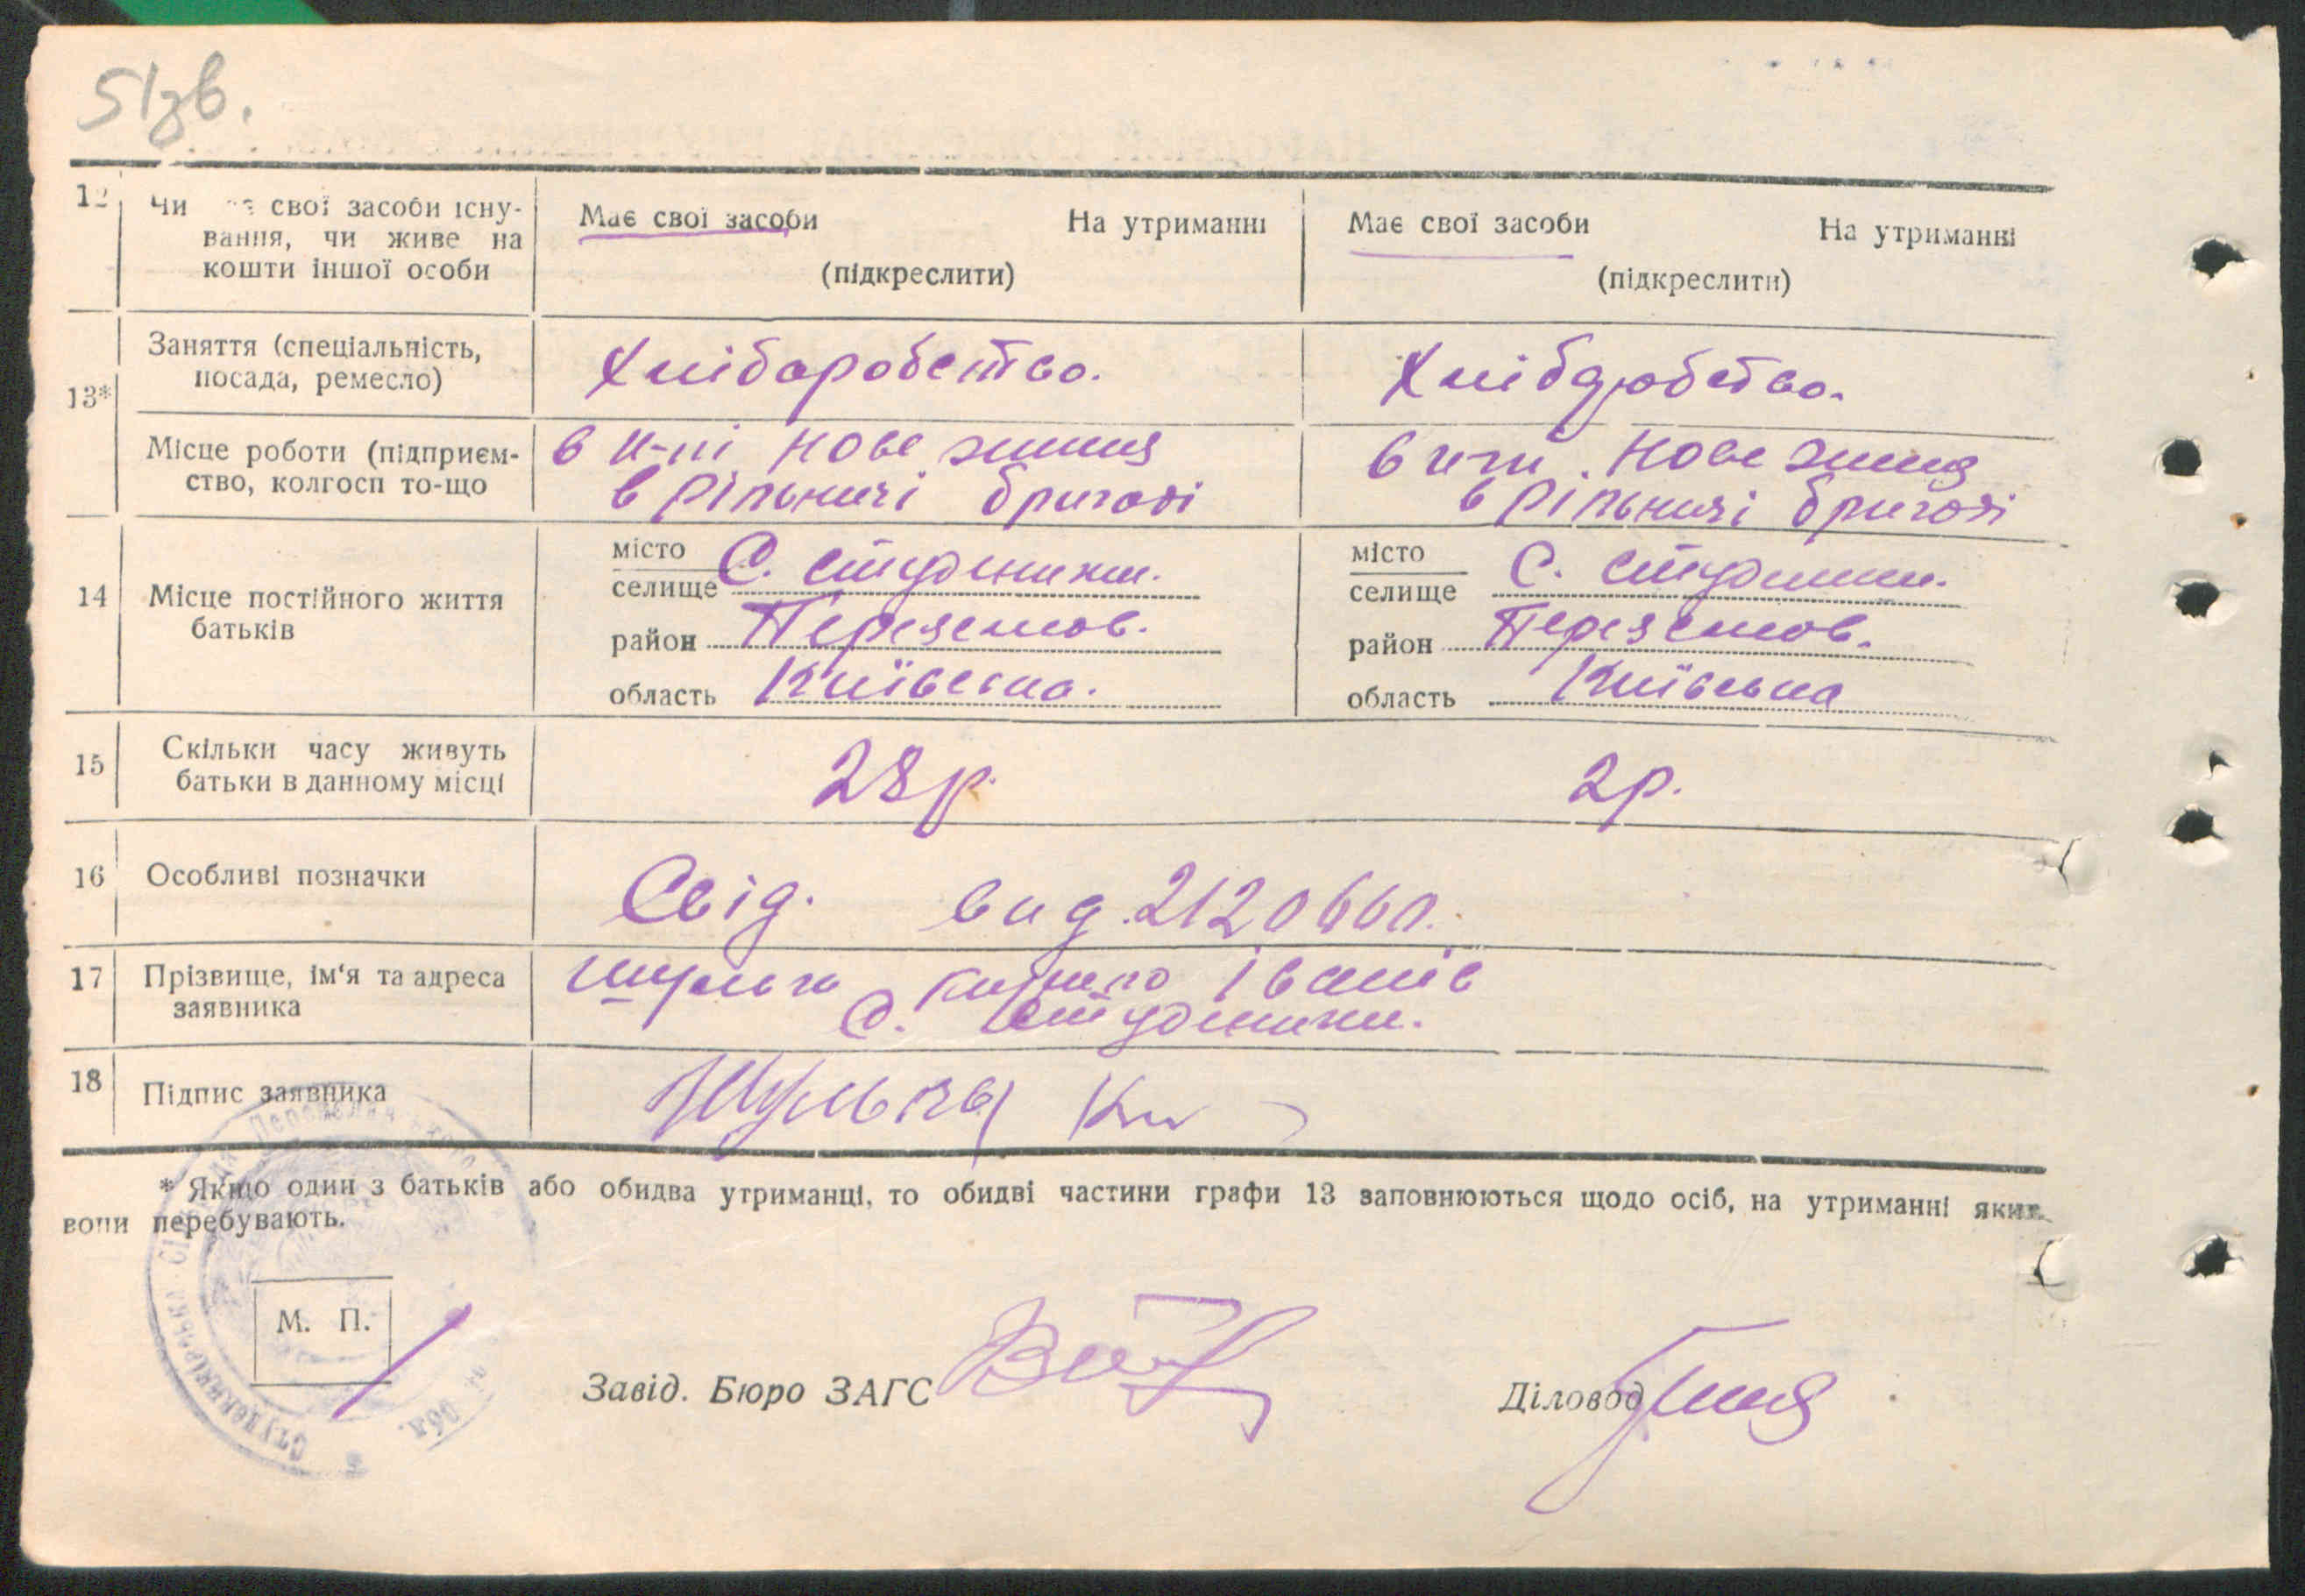 51зв.
12 Чи має свої засоби існу-
вання, чи живе на
кошти іншої особи
Має свої засоби На утриманні
(підкреслити)
Має свої засоби На утриманні
(підкреслити)
13*
Заняття (спеціальність,
посада, ремесло)
Хліборобство.
Хліборобство.
Місце роботи (підприєм-
ство, колгосп то-що
в к-пі Нове життя
в рільничі бригаді
в к-пі Нове життя
в рільничі бригаді
14 Місце постійного життя
батьків
місто
селище С. Студеники.
район Переяслов.
область Київська.
місто
селище С. Студеники.
район Переяслов.
область Київська
15 Скільки часу живуть
батьки в данному місці
28р.
2р.
16 Особливі позначки
Свід. вид.
17 Прізвище, ім‘я та адреса
заявника
Шульга Іванів
С. Студеники.
18 Підпис заявника
* Якщо один з батьків або обидва утриманці, то обидві частини графи 13 заповнюються щодо осіб, на утриманні яких
вони перебувають.
М. П.
Завід. Бюро ЗАГС
Діловод